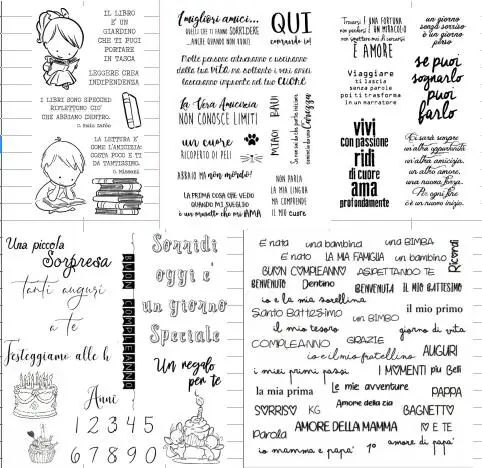 IL LIBRO
E' UN
GIARDINO
CHE TI PUOI
PORTARE
IN TASCA
LEGGERE CREA
INDIPENDENZA
I LIBRI SONO SPECCHI
RIFLETTONO CIO'
CHE ABBIAMO DENTRO.
C. Ruiz Zafón
LA LETTURA E'
COME L'AMICIZIA:
COSTA POCO E TI
DA TANTISSIMO.
I migliori amici...
QUELLI CHE TI FANNO SORRIDERE
...ANCHE QUANDO NON VUOI!
QUI
comando io!
Molte persone entreranno e usciranno
dalla tua vita, ma soltanto i veri amici
lasceranno impronte nel tuo CUORE
La Vera Amicizia
NON CONOSCE LIMITI
MIAO!
BAU!
un cuore
RICOPERTO DI PELI
ABBAIO MA non mordo!
LA PRIMA COSA CHE VEDO
QUANDO MI SVEGLIO
è un musetto che mi AMA
NON PARLA
LA MIA LINGUA
MA COMPRENDE
IL MIO cuore
Trovarsi è UNA FORTUNA
non perdersi È UN MIRACOLO
È AMORE
Viaggiare
ti lascia
senza parole
poi ti trasforma
in un narratore
vivi
con passione
ridi
di cuore
ama
profondamente
un giorno
senza sorriso
è un giorno
perso
se puoi
sognarlo
puoi
farlo
Ci sarà sempre
un'altra opportunità
un'altra amicizia,
un altro amore,
una nuova forza.
Per ogni fine
c'è un nuovo inizio.
Una piccola
Sorpresa
tanti auguri
a te
Festeggiamo alle h
BUON COMPLEANNO
Anni
1 2 3 4 5
6 7 8 9 0
Sorridi
oggi e'
un giorno
Speciale
Un regalo
per te
E' nata
una bambina
una BIMBA
E' nato
LA MIA FAMIGLIA
un bambino
Ricordi
BUON COMPLEANNO
ASPETTANDO TE
BENVENUTO
Dentino
BENVENUTA
IL MIO BATTESIMO
io e la mia sorellina
Santo Battesimo
un BIMBO
il mio primo
il mio tesoro
giorno di vita
COMPLEANNO
GRAZIE
io e il mio fratellino
AUGURI
i miei primi passi
I MOMENTI più Belli
la mia prima
Le mie avventure
PAPPA
SORRISO
KG
Amore della zia
BAGNETTO
Parola
AMORE DELLA MAMMA
E TE
io mamma e papa'
1°
amore di papa'